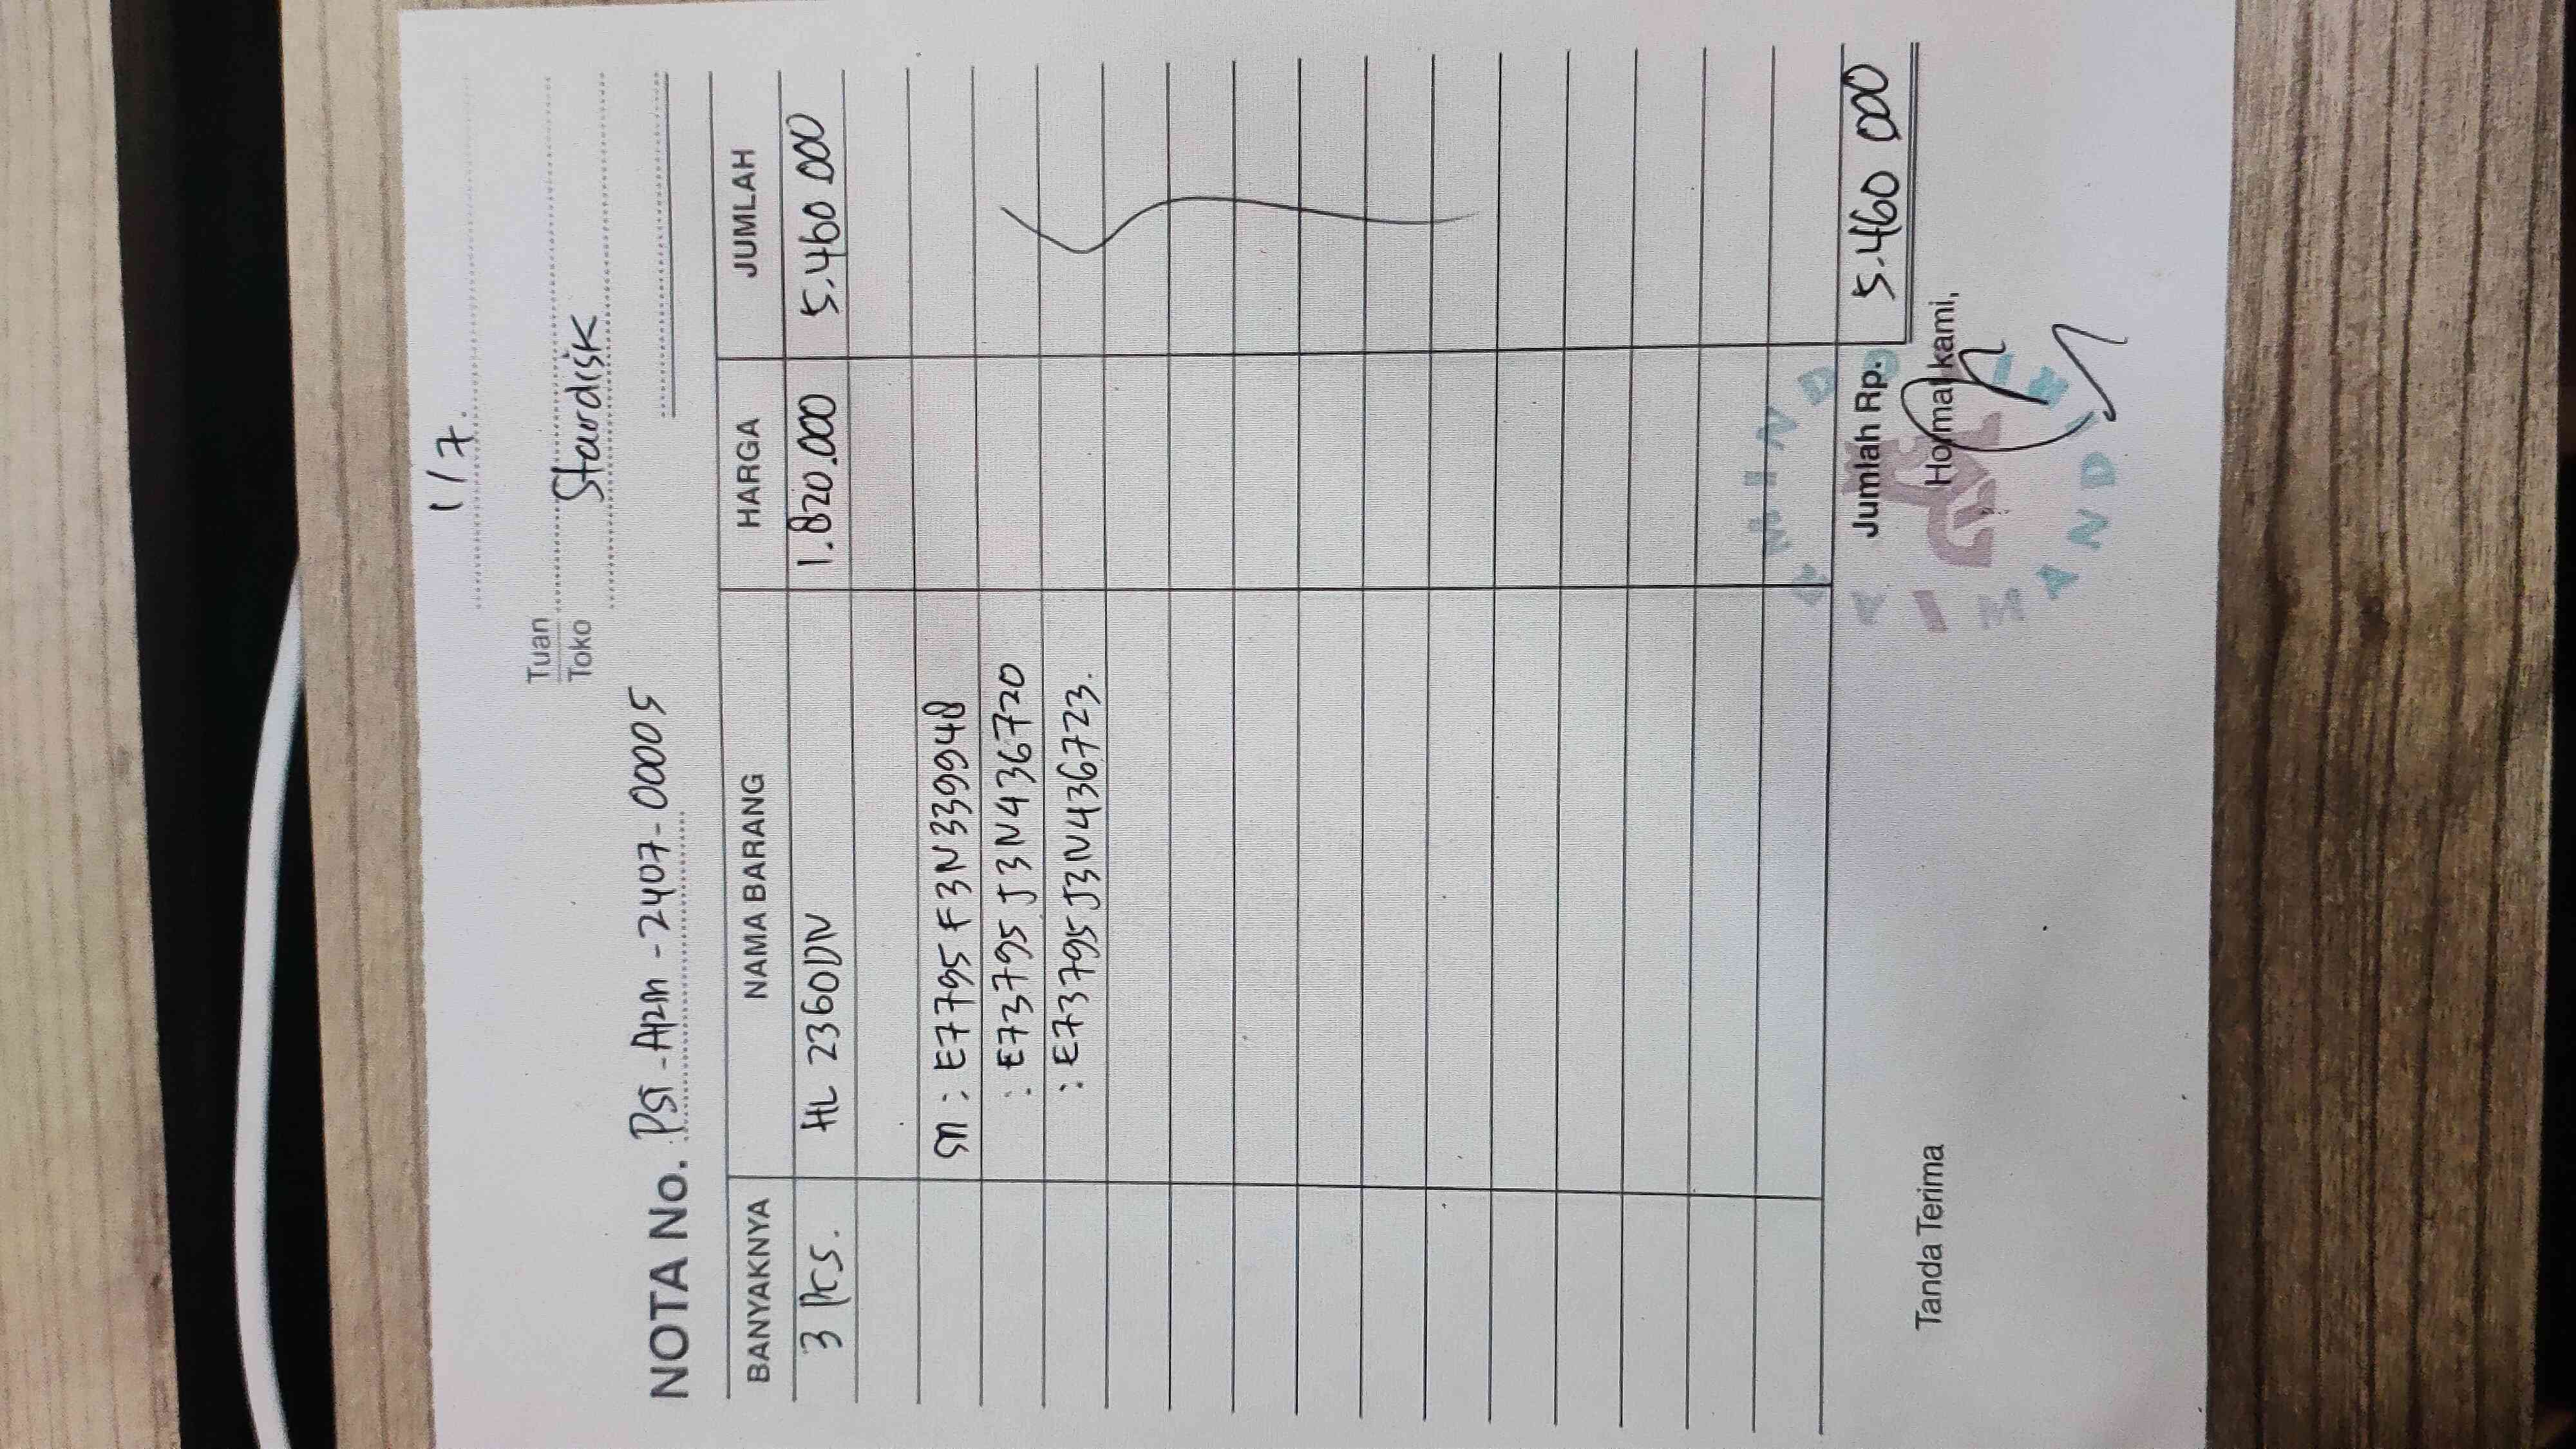 1/7.
Tuan
Toko Stardisk
NOTA No. PST-APM-2407-00005
BANYAKNYA NAMA BARANG HARGA JUMLAH
3 Pcs. HL 2360DN 1.820.000 5.460.000
SN : E7795F3N339948
: E73795J3N436720
: E73795J3N436723.
Jumlah Rp. 5.460 000
Tanda Terima Hormat kami,
MANDI